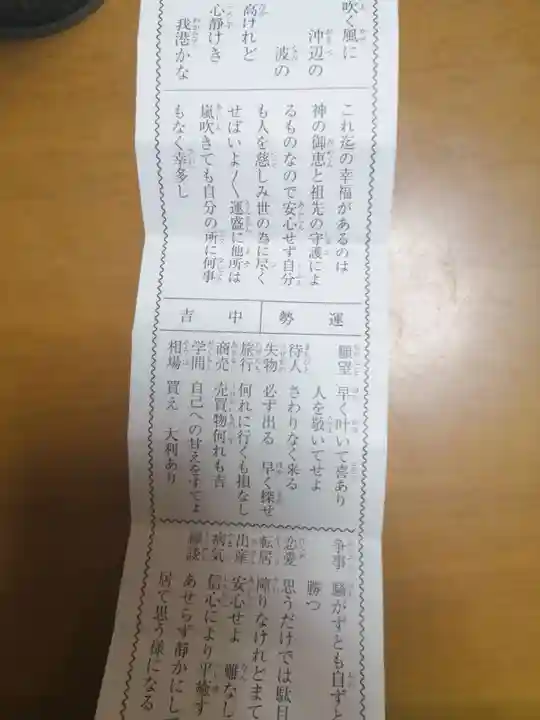 吹く風に
沖辺の
波の
高けれど
心静けき
我港かな
これ迄の幸福があるのは
神の御恵と祖先の守護によ
るものなので安心せず自分
も人を慈しみ世の為に尽く
せばいよ〳〵運盛に他所は
嵐吹きても自分の所に何事
もなく幸多し
運勢
中吉
願望 早く叶いて喜あり
人を敬いてせよ
待人 さわりなく来る
失物 必ず出る 早く探せ
旅行 何れに行くも損なし
商売 売買物何れも吉
学問 自己への甘えをすてよ
相場 買え 大利あり
争事 騒がずとも自ずと
勝つ
恋愛 思うだけでは駄目
転居 障りなけれどまて
出産 安心せよ 難なし
病気 信心により平癒す
縁談 あせらず静かにして
居て思う様になる